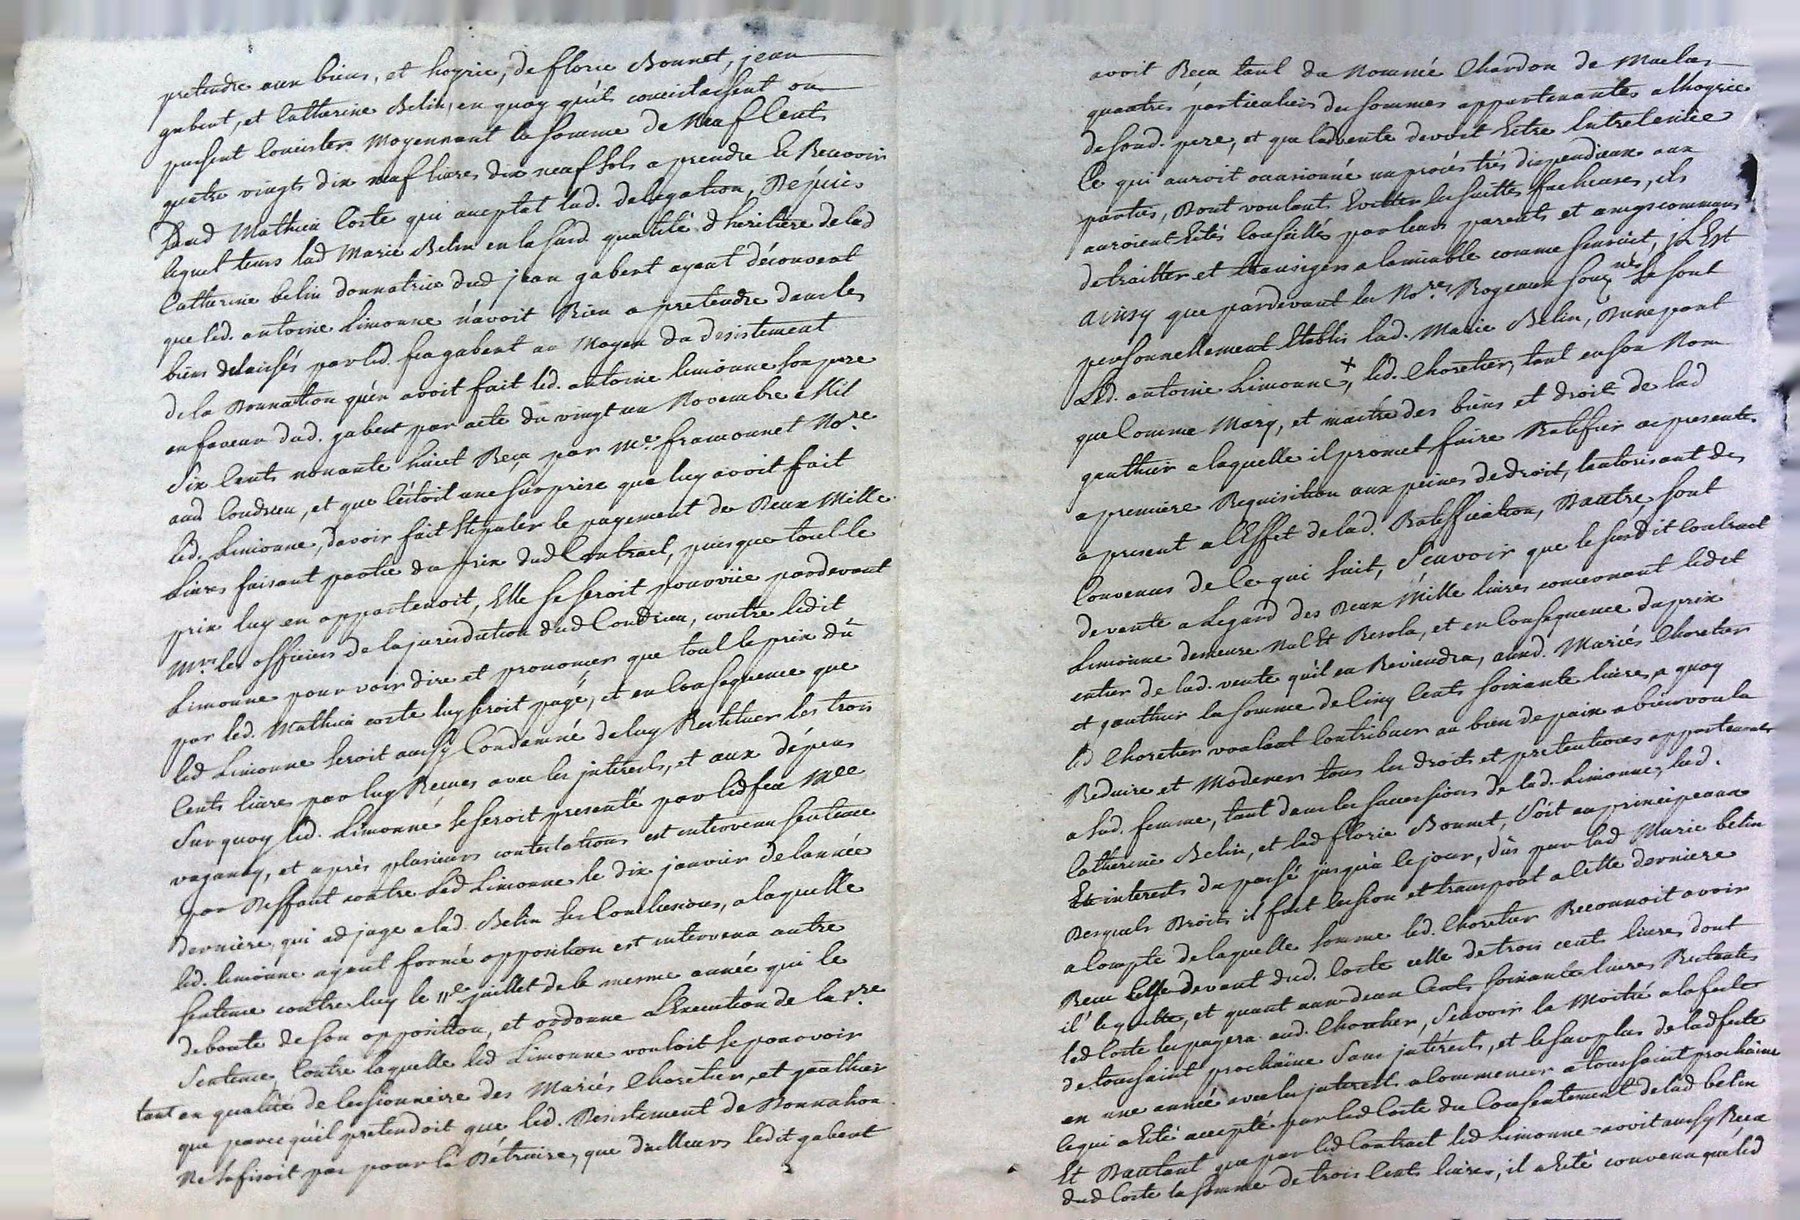 pretendre aux biens, et hoyrie, de florie Bonnet, jean
gabent, et Catherine Belin, en quoy qu'ils consistassent ou
pussent consister Moyennant la somme de Neuf Cents
quatre vingts dix neuf livres dix neuf sols a prendre et Recevoir
Dud Mathieu Coste qui acceptat lad. delegation, Depuis
lequel tems lad Marie Belin en la susd. qualité d'heritiere de lad
Catherine belin donnatrice dud jean gabent ayant découvert
que led. antoine Limonne n'avoit Rien a pretendre dans les
biens delaissés par led. feu gabent au Moyen du desistement
de la Donnation qu'en avoit fait led. antoine limonne son pere
en faveur dud. gabent par acte du vingt un Novembre Mil
Six Cents nonante huict Reçu par Me. framonnet Nore.
aud Condrieu, et que C'étoit une surprise que luy avoit fait
led. Limonne, davoir fait stipuler le payement de Deux Mille
Livres faisant partie du prix dud Contract, puisque tout le
prix luy en appartenoit, Elle se seroit pourvüe pardevant
Mrs. les officiers de la jurisdiction dud Condrieu, contre ledit
Limonne pour voir dire et prononcer que tout le prix dû
par led. Mathieu coste luy seroit payé, et en Consequence que
led Limonne seroit aussy Condamné de luy Restituer les trois
Cents livres par luy Recues avec les interests, et aux dépens
Sur quoy led. Limonne se seroit presenté par led feu Mee
vaganay, et après plusieurs contestations est intervenu sentence
par Deffaut contre led Limonne le dix janvier de lannée
derniere, qui adjuge a lad. Belin ses Conclusions, a laquelle
led. limonne ayant formé opposition est intervenu autre
sentence contre luy le 11e juillet de la mesme année qui le
deboute de son opposition, et ordonne L'Execution de la 1re.
Sentence, Contre laquelle led Limonne vouloit se pourvoir
tant en qualité de Cessionnaire des Mariés Choretier, et gauthier
que parce qu'il pretendoit que led. Desistement de Donnation
Ne sufisoit pas pour la Détruire, que dailleurs ledit gabent
2
avoit Recu tant du Nommé Chardon de Maclas
quautres particuliers des sommes appartenantes a lhoyrie
de sond. pere, et que lad vente devoit Estre Entretenüe
Ce qui auroit occasionné un procés trés dispendieux aux
parties, Dont voulants Evitter les suittes facheuses, ils
auroient Estés Conseillés par leurs parents et amys communs
de traitter et transiger a lamiable comme senrüit, jl Est
ainsy que pardevant les Nores. Royeaux sousnés. Se sont
personnellement Etablis lad. Marie Belin, Dune part
Led. antoine Limonne ×, led. Choretier, tant en son Nom
que Comme Mary, et maitre des biens et droit de lad
gauthier a laquelle il promet faire Ratifier ces presentes
a premiere Requisition aux peines de droit, lautorisant des
a present a l'Effet de lad. Ratiffication, Dautre, sont
Convenus de Ce qui suit, Scavoir que le susdit Contract
de vente a Legard des Deux Mille livres concernant ledit
Limonne demeure Nul Et Resolu, et en Consequence du prix
entier de lad. vente qu'il en Reviendra, auxd. Mariés Choretier
et gauthier la somme de Cinq Cents soixante livres, a quoy
led Choretier voulant Contribuer au bien de paix a bien voulu
Reduire et Moderer tous les droits et pretentions appartenants
a sad. femme, tant dans les successions de lad. Limonne, lad.
Catherine Belin, et lad florie Bonnet, Soit en principeaux
Et interests du passé jusqu'a ce jour, dûs par lad Marie belin
Desquels Droits il fait Cession et transport a Cette derniere
a Compte de laquelle somme led. Choretier Reconnoit avoir
Recu Cesse devant dud. Coste celle de trois cents livres, dont
il l'e quitte, et quant aux deux Cents soixante livres Restantes
led Coste les payera aud. Choretier, Scavoir la Moitié a la feste
de toussaint prochaine Sans intérests, et le surplus de lad feste
en une année avec les interests a Commencer a toussaint prochaine
ce qui a Eté accepté par led Coste du Consentement de lad belin
Et Dautant que par led Contract led Limonne avoit aussy Recu
dud Coste la somme de trois Cents livres, il a Eté convenu que led